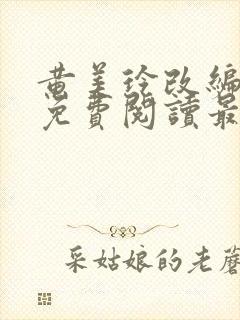 黄美玲改编
免費閱讀最
采姑娘的老蘑